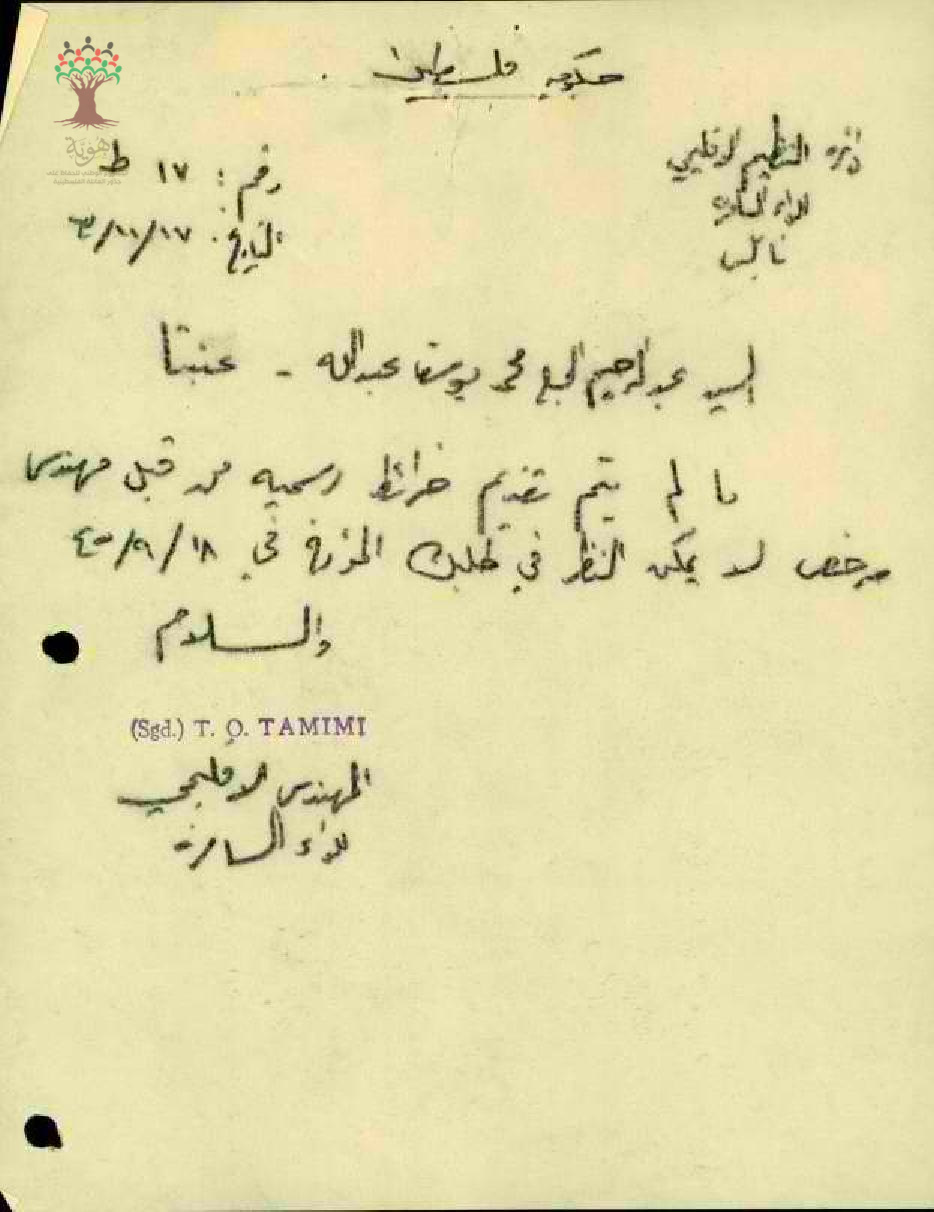 حكومة فلسطين
دائرة التنظيم الاقليمي
لواء السامرة
نابلس
رقم : ١٧ ط
التاريخ: ١٧/١٠/
هوية
السيد عبد الرحيم الحاج محمد يوسف عبدالله - عنبتا
ما لم يتم تقديم خرائط رسميه من قبل مهندس
مرخص لا يمكن النظر في طلبك المؤرخ في ١٨/٩/٤٥
والسلام
(Sgd.) T. O. TAMIMI
المهندس الاقليمي
لواء السامرة